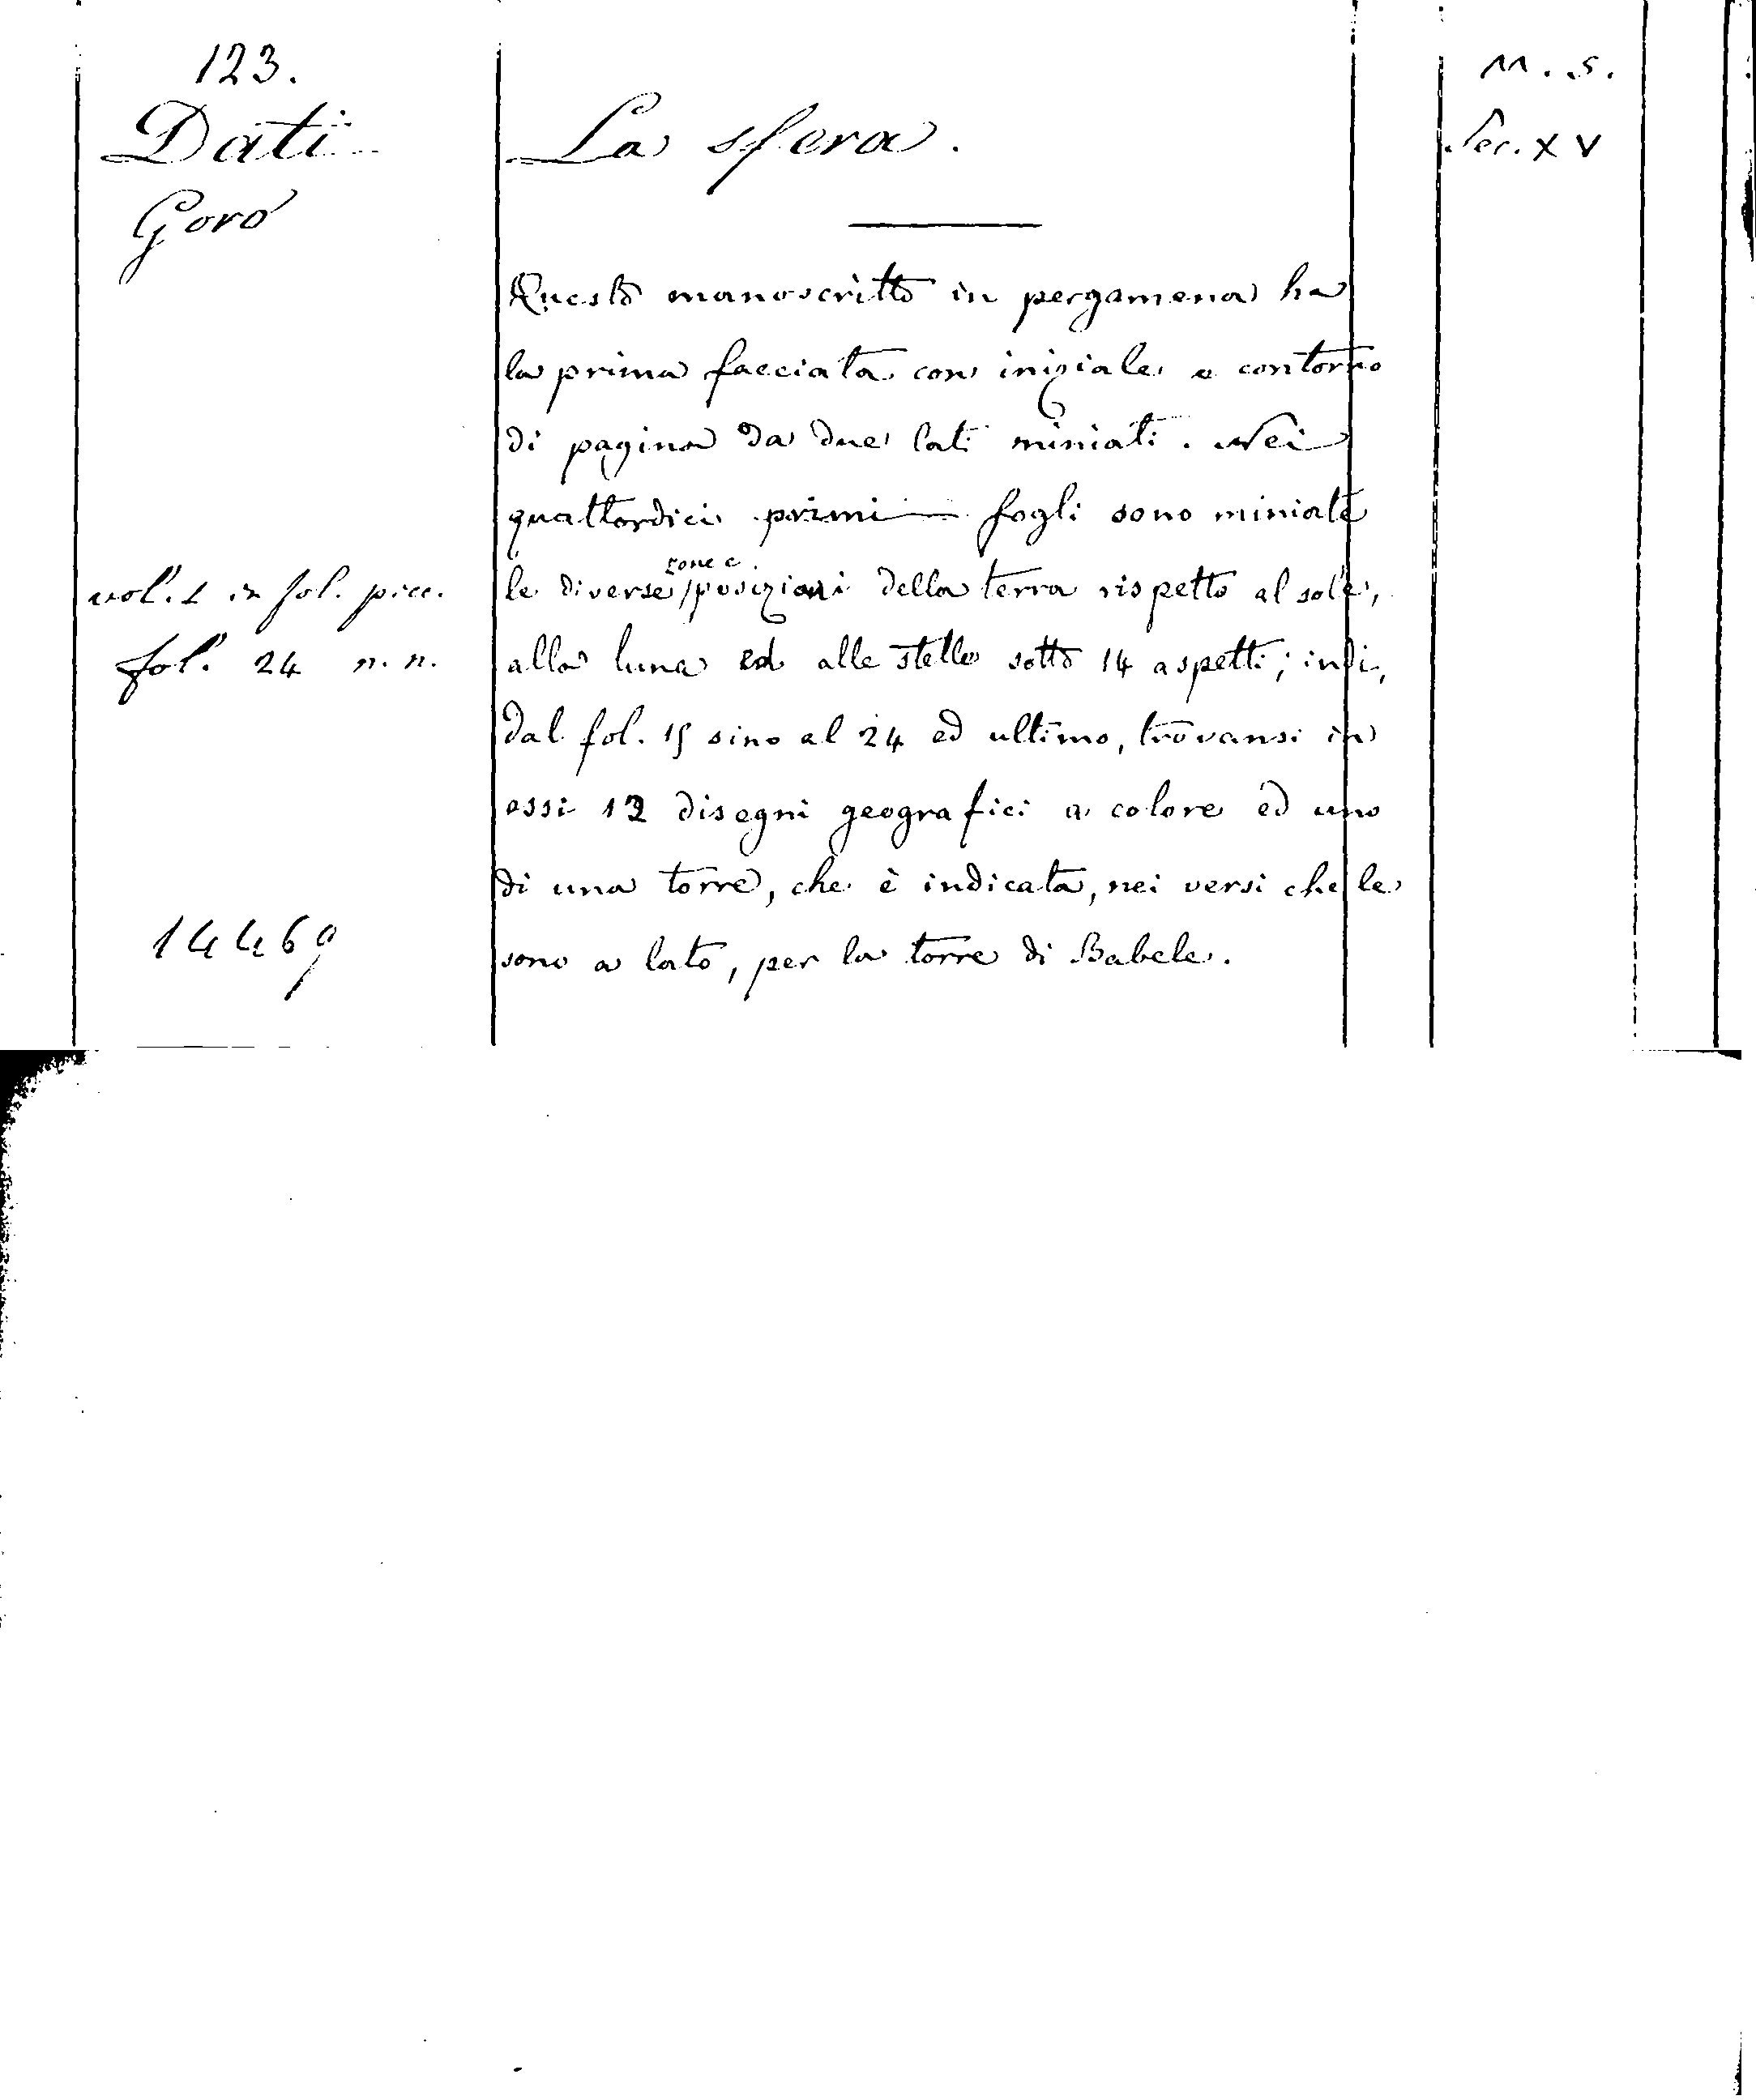 123.
Dati
Goro
vol. 1 in fol. picc.
fol. 24 n. n.
14469
La sfera.
Questo manoscritto in pergamena ha
la prima facciata con iniziale e contorno
di pagina da due lati miniati. Nei
quattordici primi fogli sono miniate
le diverse zone e posizioni della terra rispetto al sole,
alla luna ed alle stelle sotto 14 aspetti; indi,
dal fol. 15 sino al 24 ed ultimo, trovansi in
essi 12 disegni geografici a colore ed uno
di una torre, che è indicata, nei versi che le
sono a lato, per la torre di Babele.
M. S.
Sec. XV